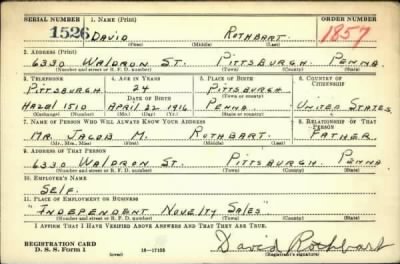 SERIAL NUMBER 1. NAME (Print) ORDER NUMBER
1526 DAVID ROTHBART 1857
(First) (Middle) (Last)
2. ADDRESS (Print)
6330 WALDRON ST. PITTSBURGH. PENNA.
(Number and street or R. F. D. number) (Town) (County) (State)
3. TELEPHONE 4. AGE IN YEARS 5. PLACE OF BIRTH 6. COUNTRY OF CITIZENSHIP
PITTSBURGH 24 PITTSBURGH
DATE OF BIRTH (Town or county)
HAZEL 1510 APRIL 22 1916 PENNA UNITED STATES
(Exchange) (Number) (Mo.) (Day) (Yr.) (State or country)
7. NAME OF PERSON WHO WILL ALWAYS KNOW YOUR ADDRESS 8. RELATIONSHIP OF THAT PERSON
MR. JACOB M. ROTHBART FATHER
(Mr., Mrs., Miss) (First) (Middle) (Last)
9. ADDRESS OF THAT PERSON
6330 WALDRON ST. PITTSBURGH PENNA
(Number and street or R. F. D. number) (Town) (County) (State)
10. EMPLOYER'S NAME
SELF.
11. PLACE OF EMPLOYMENT OR BUSINESS
"INDEPENDENT NOVELTY SALES"
(Number and street or R. F. D. number) (Town) (County) (State)
I AFFIRM THAT I HAVE VERIFIED ABOVE ANSWERS AND THAT THEY ARE TRUE.
REGISTRATION CARD
D. S. S. Form 1 (over) 16-17105 David Rothbart
(Registrant's signature)